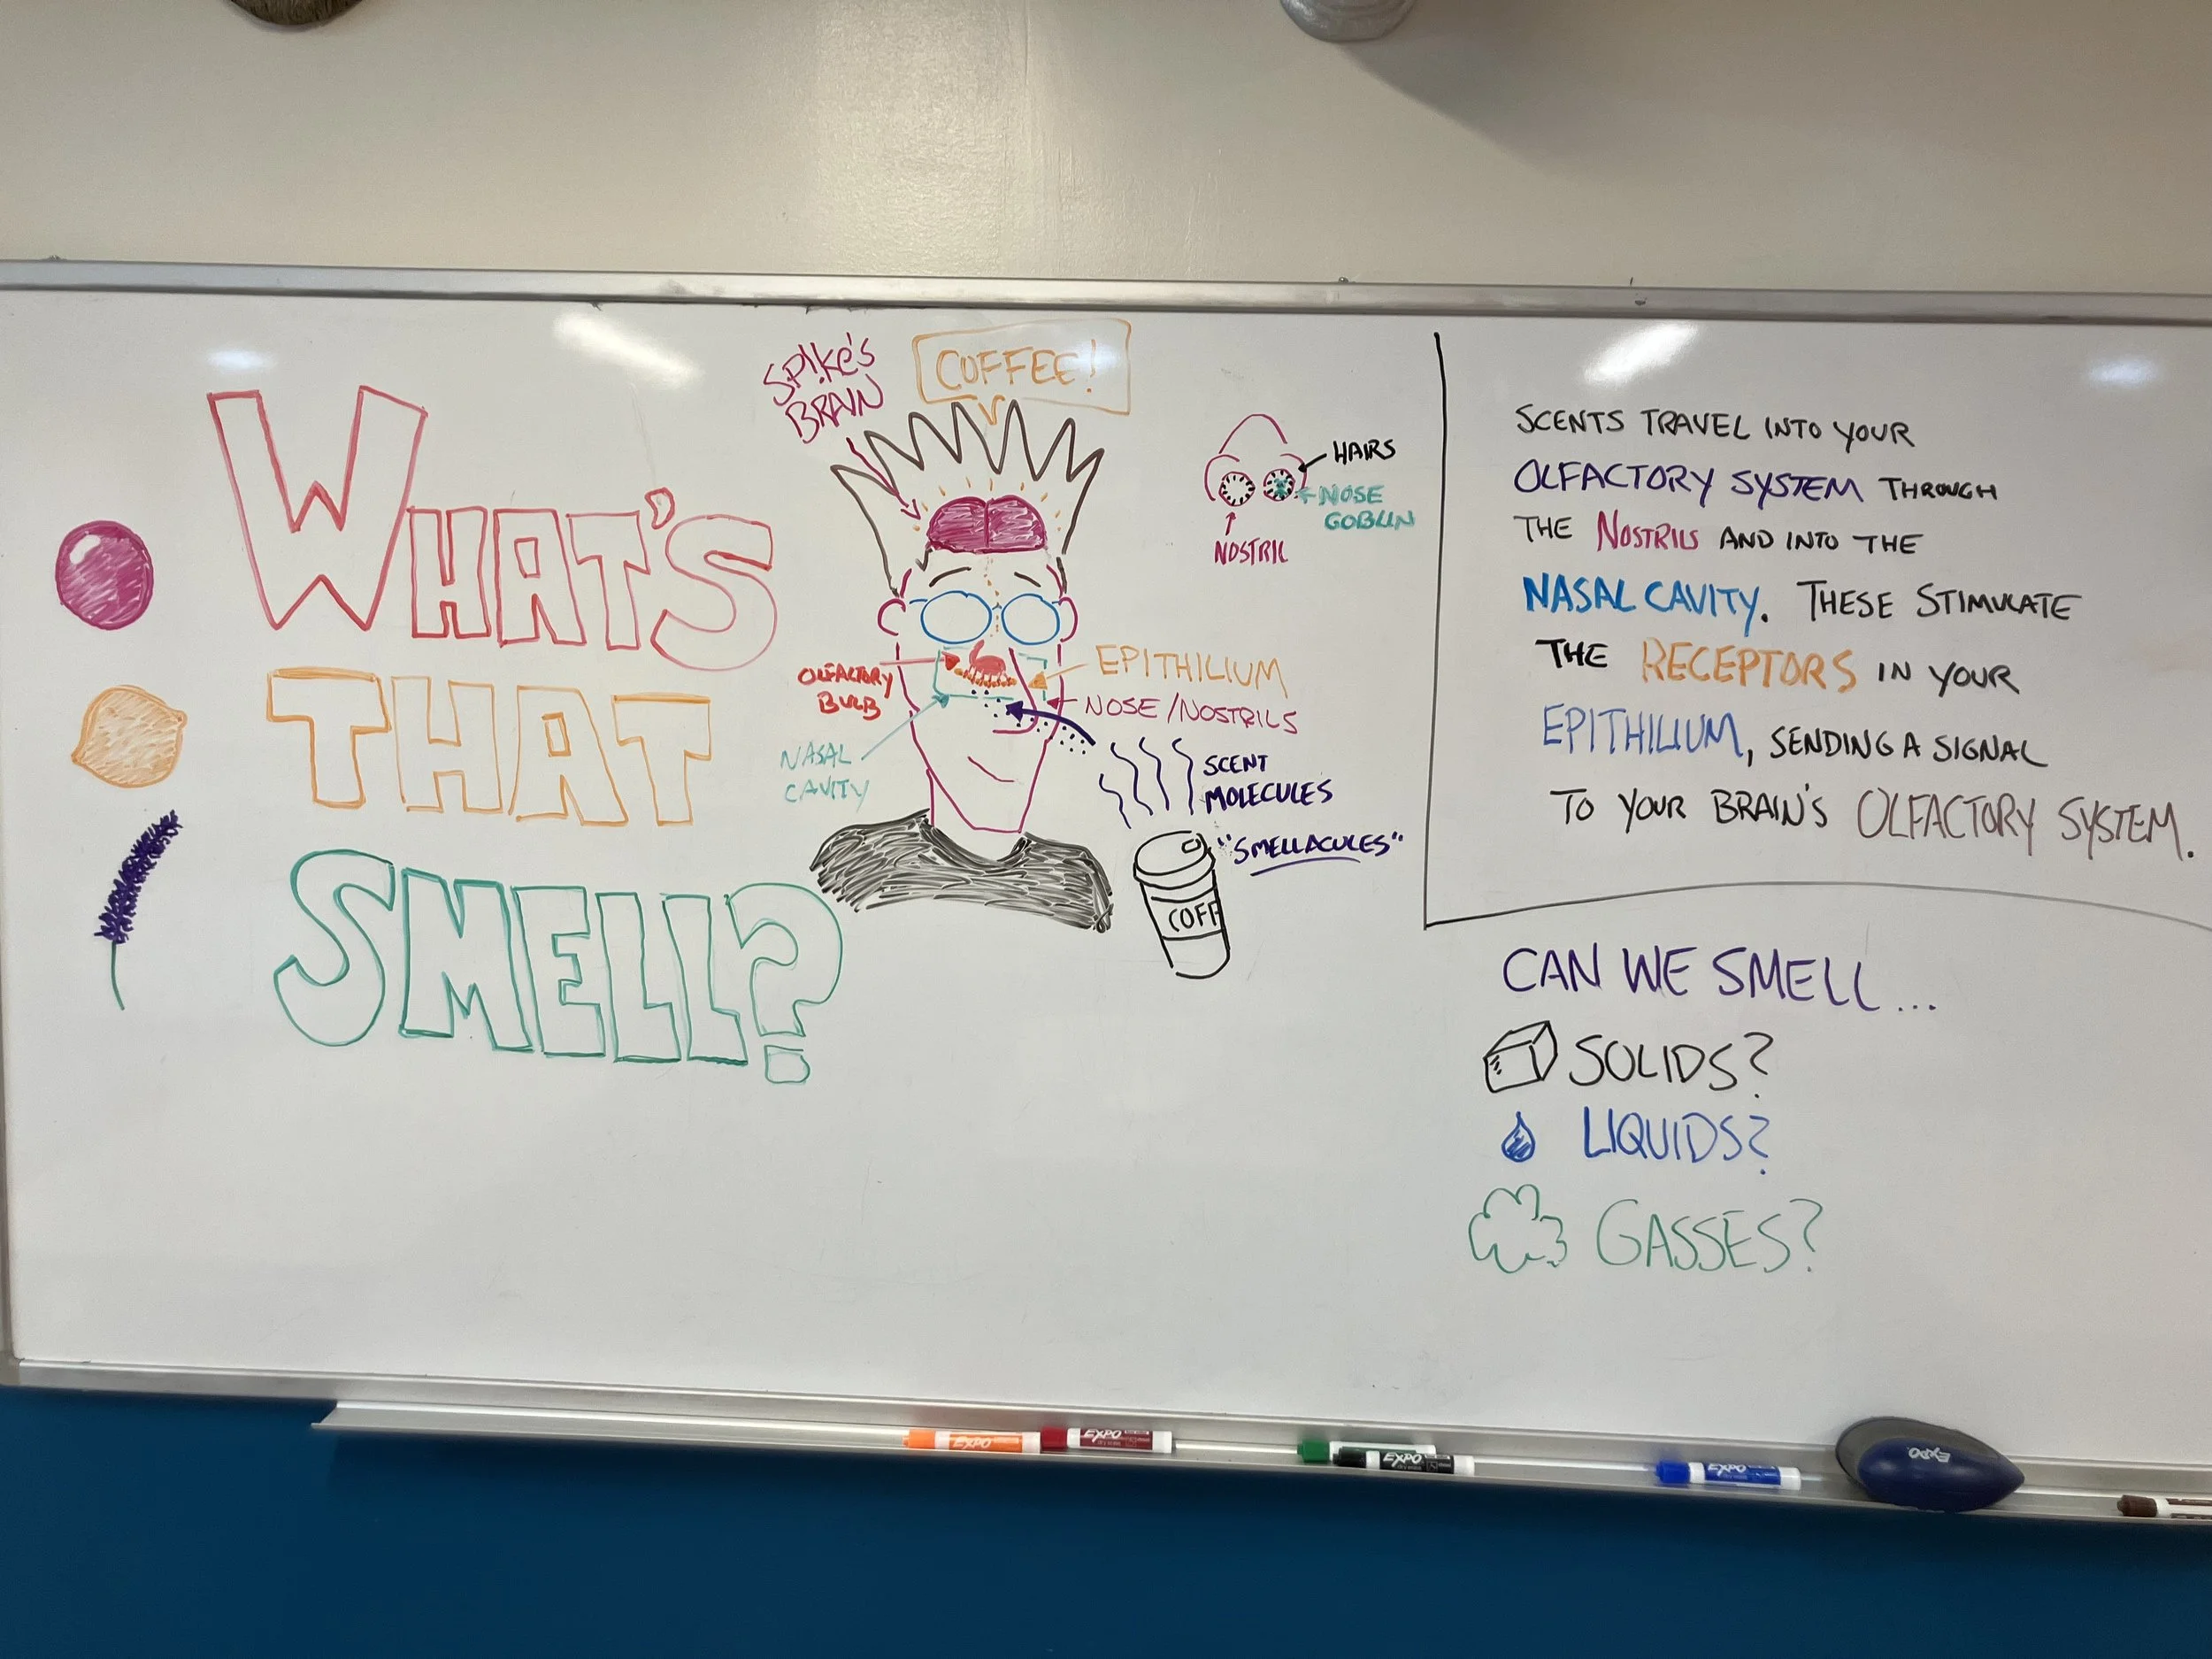 WHAT'S
THAT
SMELL?
SPIKE'S
BRAIN
COFFEE!
HAIRS
NOSE
GOBLIN
NOSTRIL
OLFACTORY
BULB
EPITHILIUM
NOSE/NOSTRILS
NASAL
CAVITY
SCENT
MOLECULES
"SMELLACULES"
COFF
SCENTS TRAVEL INTO YOUR
OLFACTORY SYSTEM THROUGH
THE NOSTRILS AND INTO THE
NASAL CAVITY. THESE STIMULATE
THE RECEPTORS IN YOUR
EPITHILIUM, SENDING A SIGNAL
TO YOUR BRAIN'S OLFACTORY SYSTEM.
CAN WE SMELL...
SOLIDS?
LIQUIDS?
GASSES?
EXPO
EXPO
EXPO
EXPO
EXPO